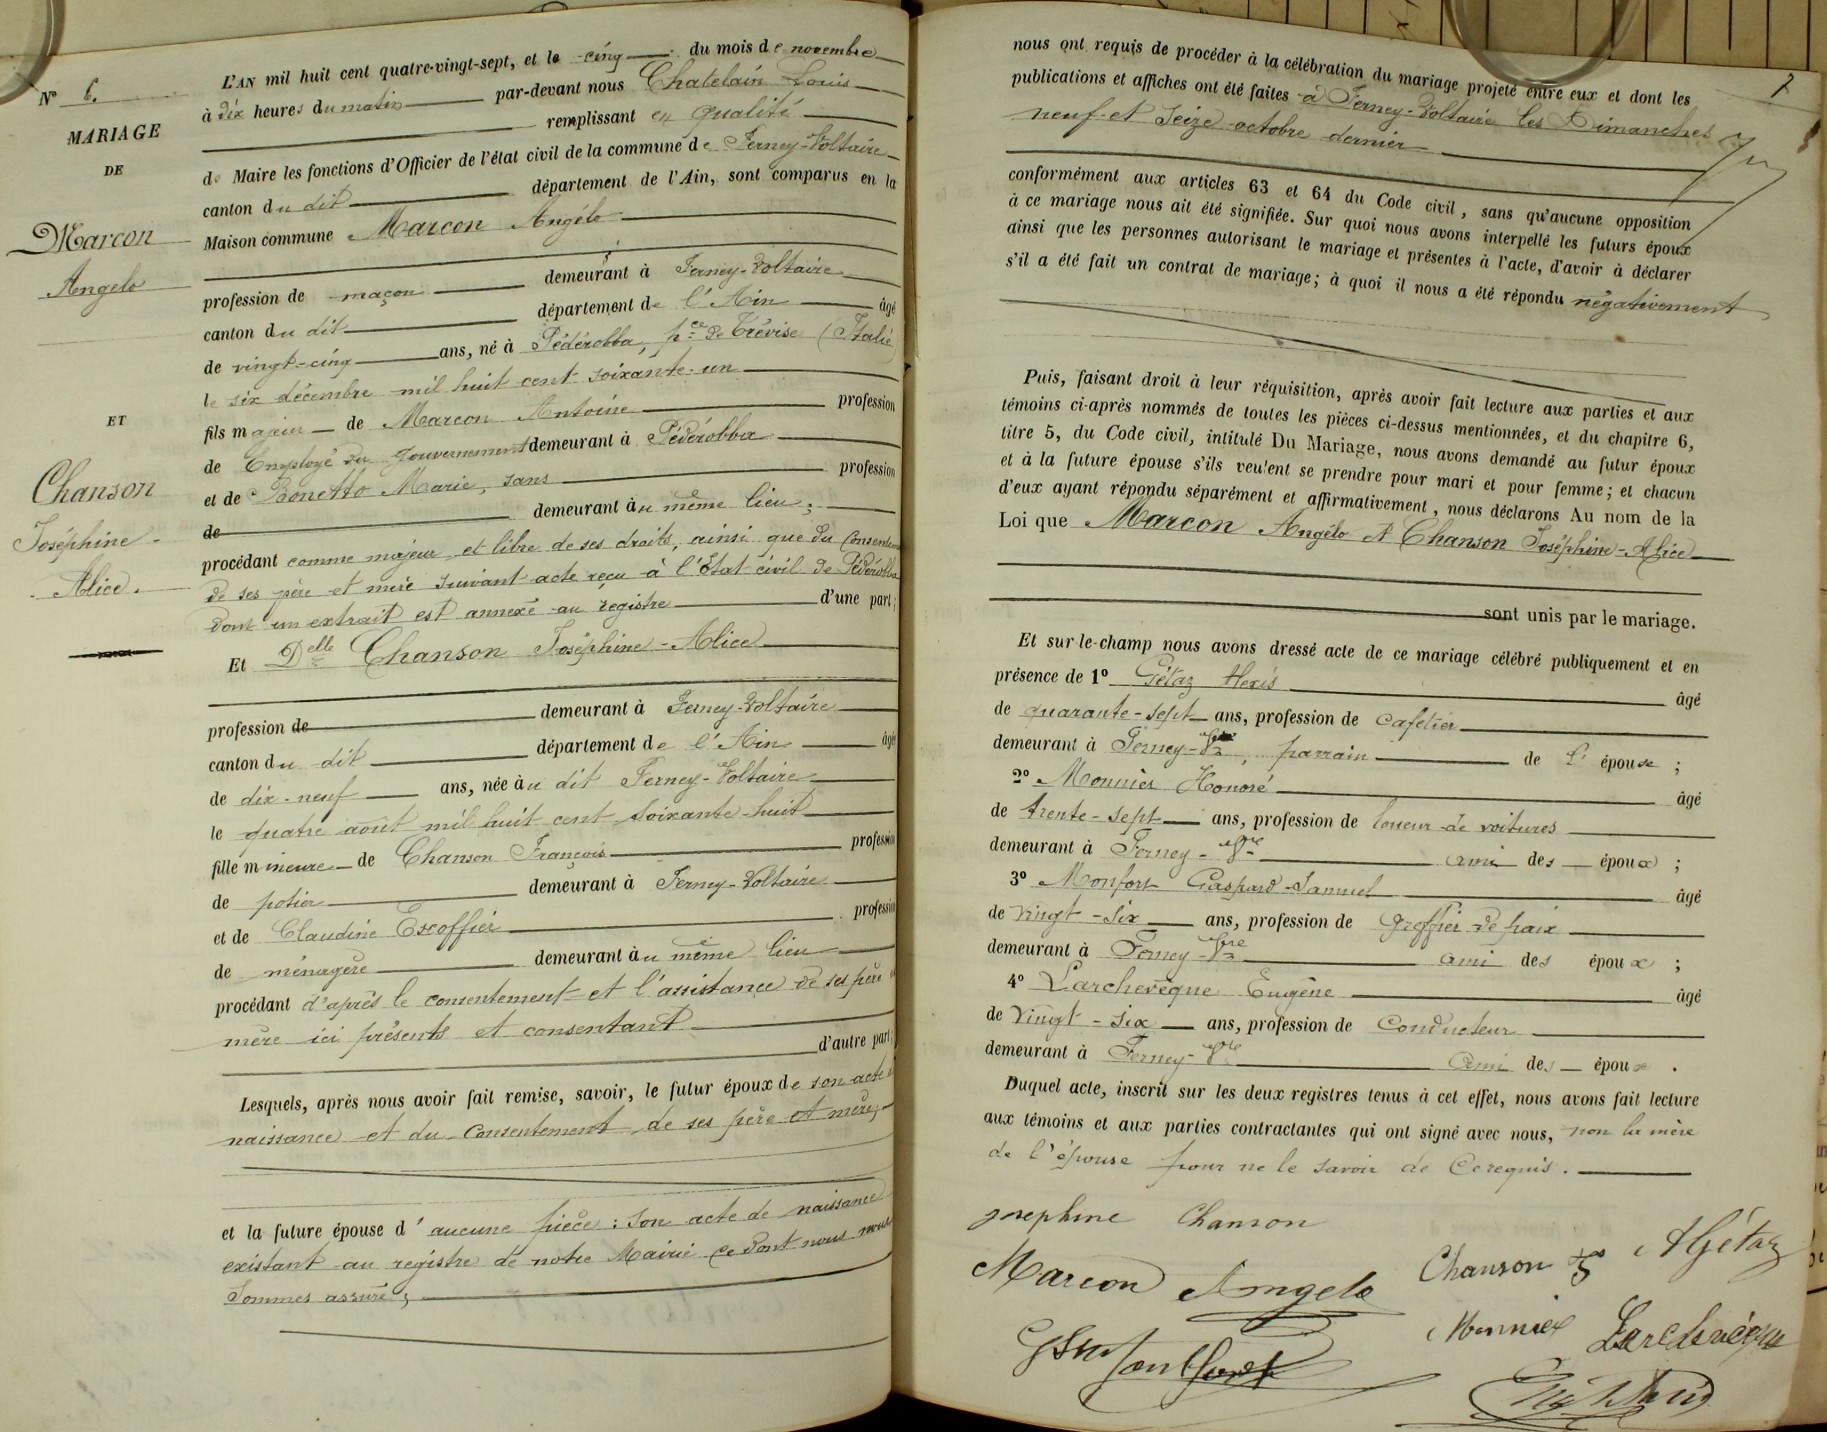 N° 6.
MARIAGE
DE
Marcon
Angelo
ET
Chanson
Joséphine
Alice.
L'AN mil huit cent quatre-vingt-sept, et le cinq du mois de novembre
à dix heures du matin par-devant nous Chatelain Louis
remplissant en qualité
de Maire les fonctions d'Officier de l'état civil de la commune de Ferney-Voltaire
canton du dit département de l'Ain, sont comparus en la
Maison commune Marcon Angélo
profession de maçon demeurant à Ferney-Voltaire
canton du dit département de l'Ain âgé
de vingt-cinq ans, né à Pédérobba, pce de Trévise (Italie)
le six décembre mil huit cent soixante-un
fils majeur de Marcon Antoine profession
de Employé du Gouvernement demeurant à Pédérobba
et de Bonetto Marie, sans profession
de demeurant au même lieu;
procédant comme majeur et libre de ses droits, ainsi que du consentement
de ses père et mère suivant acte reçu à l'Etat civil de Pédérobba
dont un extrait est annexé au registre d'une part;
Et Delle Chanson Joséphine-Alice
profession de demeurant à Ferney-Voltaire
canton du dit département de l'Ain âgée
de dix-neuf ans, née au dit Ferney-Voltaire
le quatre août mil huit cent soixante-huit
fille mineure de Chanson François profession
de potier demeurant à Ferney-Voltaire
et de Claudine Escoffier profession
de ménagère demeurant au même lieu
procédant d'après le consentement et l'assistance de ses père et
mère ici présents et consentant
d'autre part;
Lesquels, après nous avoir fait remise, savoir, le futur époux de son acte de
naissance et du consentement de ses père et mère;
et la future épouse d'aucune pièce: son acte de naissance
existant au registre de notre Mairie ce dont nous nous
sommes assuré;
7
nous ont requis de procéder à la célébration du mariage projeté entre eux et dont les
publications et affiches ont été faites à Ferney-Voltaire les Dimanches
neuf et seize octobre dernier
conformément aux articles 63 et 64 du Code civil, sans qu'aucune opposition
à ce mariage nous ait été signifiée. Sur quoi nous avons interpellé les futurs époux
ainsi que les personnes autorisant le mariage et présentes à l'acte, d'avoir à déclarer
s'il a été fait un contrat de mariage; à quoi il nous a été répondu négativement
Puis, faisant droit à leur réquisition, après avoir fait lecture aux parties et aux
témoins ci-après nommés de toutes les pièces ci-dessus mentionnées, et du chapitre 6,
titre 5, du Code civil, intitulé Du Mariage, nous avons demandé au futur époux
et à la future épouse s'ils veulent se prendre pour mari et pour femme; et chacun
d'eux ayant répondu séparément et affirmativement, nous déclarons Au nom de la
Loi que Marcon Angélo et Chanson Joséphine-Alice
sont unis par le mariage.
Et sur-le-champ nous avons dressé acte de ce mariage célébré publiquement et en
présence de 1° Gétaz Alexis âgé
de quarante-sept ans, profession de cafetier
demeurant à Ferney-Vre, parrain de l'épouse;
2° Monnier Honoré âgé
de trente-sept ans, profession de loueur de voitures
demeurant à Ferney-Vre ami des époux;
3° Monfort Gaspard-Samuel âgé
de vingt-six ans, profession de Greffier de paix
demeurant à Ferney-Vre ami des époux;
4° Larchevêque Eugène âgé
de vingt-six ans, profession de Conducteur
demeurant à Ferney-Vre ami des époux.
Duquel acte, inscrit sur les deux registres tenus à cet effet, nous avons fait lecture
aux témoins et aux parties contractantes qui ont signé avec nous, non la mère
de l'épouse pour ne le savoir de ce requis.
Josephine Chanson
Marcon Angelo Chanson fs A Gétaz
GSMontfort Monnier Larchevêque